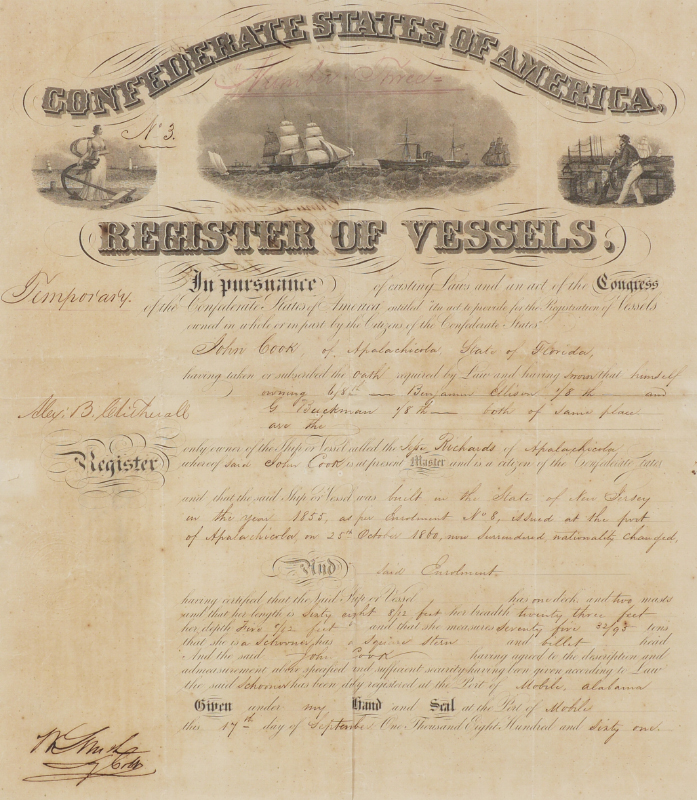 CONFEDERATE STATES OF AMERICA,
No 3.
REGISTER OF VESSELS.
Temporary.
In pursuance of existing Laws and "an act of the Congress
of the Confederate States of America entitled "An act to provide for the Registration of Vessels
owned in whole or in part by the Citizens of the Confederate States"
John Cook of Apalachicola State of Florida,
having taken or subscribed the Oath required by Law and having sworn that himself
owning 6/8th Benjamin Ellison 1/8th and
G 1/8th both of same place
are the
Alex. B.
only owner of the Ship or Vessel called the Richards of Apalachicola
Register
whereof said John Cook is at present Master and is a citizen of the Confederate States
and that the said Ship or Vessel was built in the State of New Jersey
in the year 1855, as per Enrolment No 8, issued at the port
of Apalachicola, on 25th October 1860, now surrendered nationality changed,
And said Enrolment.
having certified that the Said Ship or Vessel has one deck and two masts
and that her length is Sixty eight 8/12 feet her breadth twenty three feet
her depth Five feet and that she measures Seventy five 32/95 tons
that she is a Schooner has a Square Stern and billet head
And the said John Cook having agreed to the description and
admeasurement above specified and sufficient security having been given according to Law
the said Schooner has been duly registered at the Port of Mobile, Alabama
Given under my Hand and Seal at the Port of Mobile
this 17th day of September One Thousand Eight Hundred and Sixty one